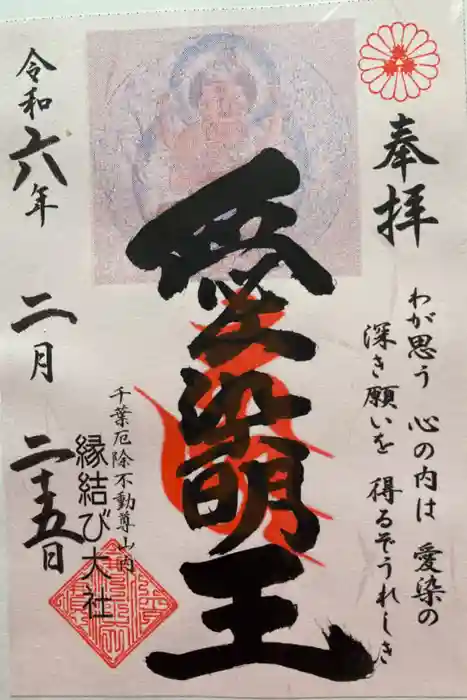 奉拝
わが思う 心の内は 愛染の
深き願いを 得るぞうれしき
愛染明王
千葉厄除不動尊山内
縁結び大社
令和六年 二月 二十五日